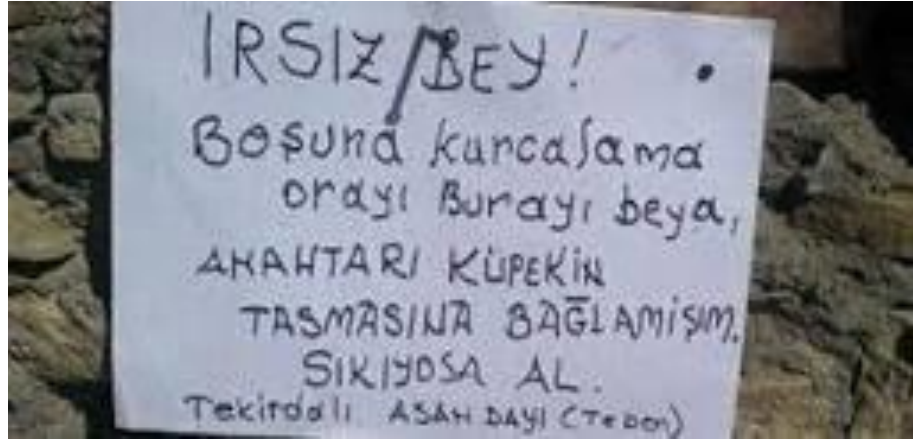 IRSIZ BEY!
Boşuna kurcalama
orayı Burayı beya,
ANAHTARI KÜPEKİN
TASMASINA BAĞLAMIŞIM.
SIKIYOSA AL.
Tekirdalı ASAN DAYI (Teben)